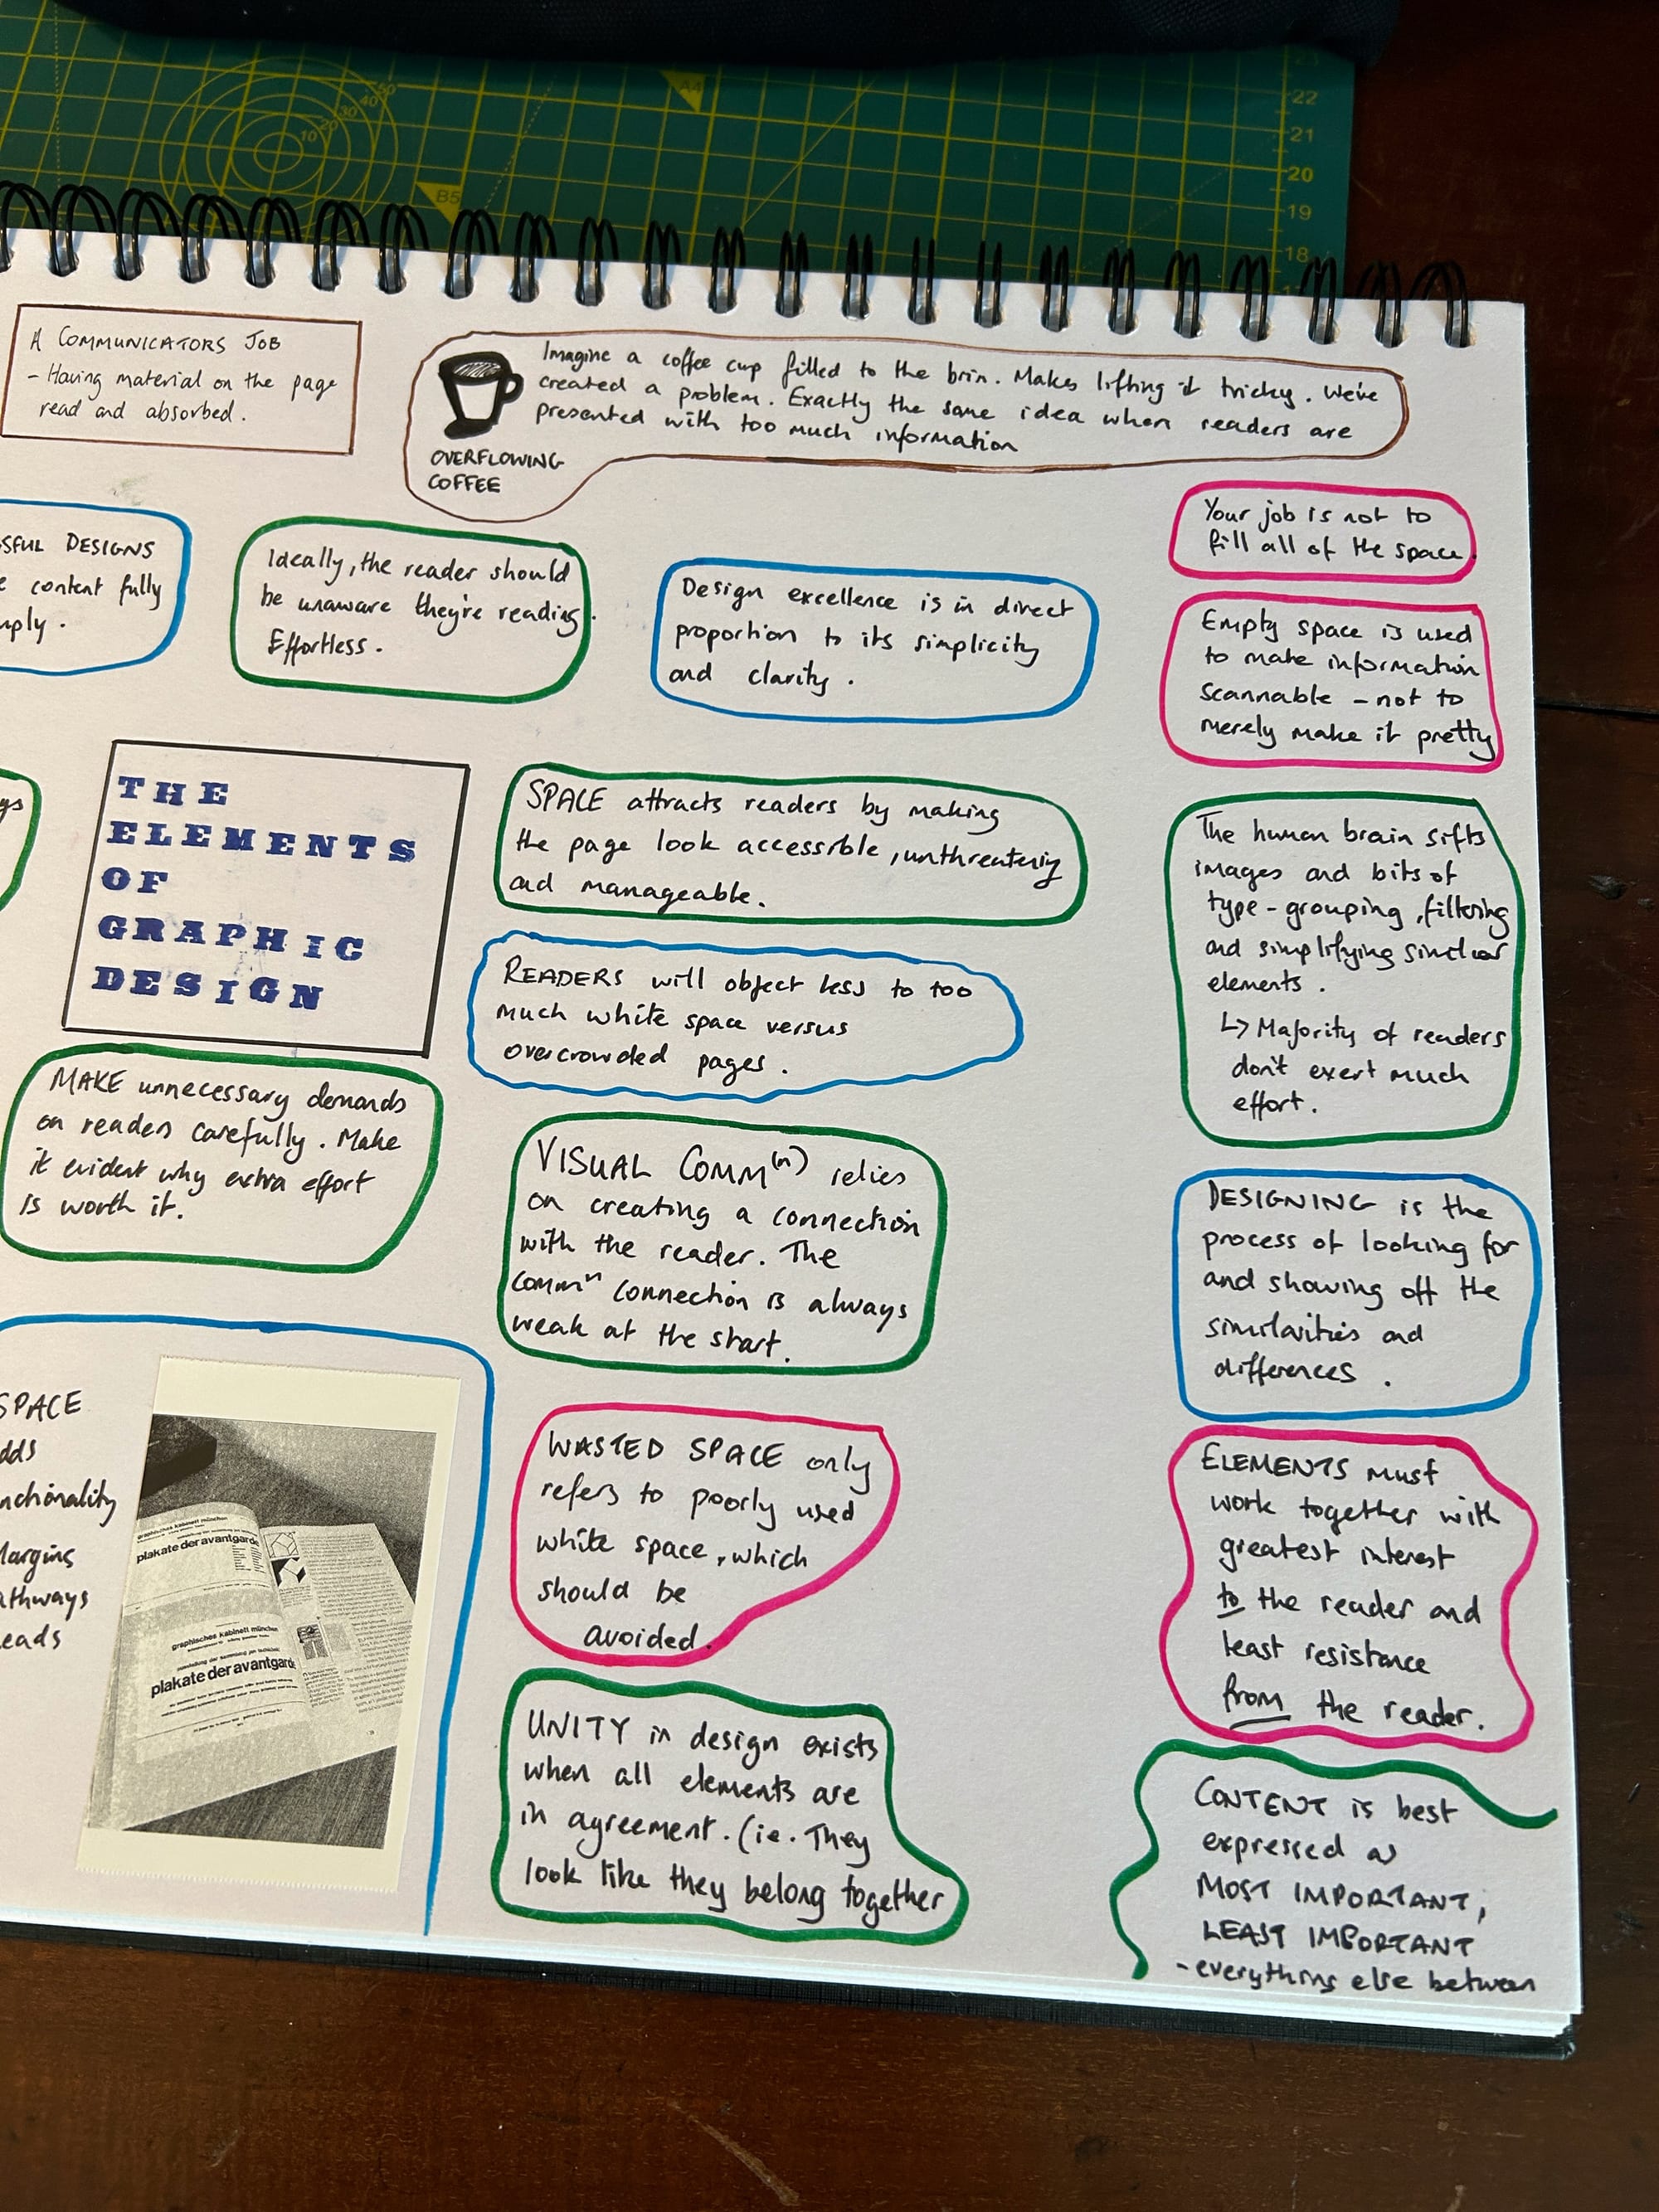 22
21
20
19
18
A4
B5
10 20 30 40 50
A COMMUNICATORS JOB
- Having material on the page
read and absorbed.
Imagine a coffee cup filled to the brim. Makes lifting it tricky. We've
created a problem. Exactly the same idea when readers are
presented with too much information
OVERFLOWING
COFFEE
SFUL DESIGNS
content fully
mply.
Ideally, the reader should
be unaware they're reading.
Effortless.
Design excellence is in direct
proportion to its simplicity
and clarity.
Your job is not to
fill all of the space.
Empty space is used
to make information
scannable - not to
merely make it pretty
THE
ELEMENTS
OF
GRAPHIC
DESIGN
SPACE attracts readers by making
the page look accessible, unthreatening
and manageable.
READERS will object less to too
much white space versus
overcrowded pages.
The human brain sifts
images and bits of
type - grouping, filtering
and simplifying similar
elements.
↳ Majority of readers
don't exert much
effort.
MAKE unnecessary demands
on readers carefully. Make
it evident why extra effort
is worth it.
VISUAL COMM(n) relies
on creating a connection
with the reader. The
commⁿ connection is always
weak at the start.
DESIGNING is the
process of looking for
and showing off the
similarities and
differences.
SPACE
dds
nctionality
Margins
athways
eads
graphisches kabinett münchen
plakate der avantgarde
graphisches kabinett münchen
plakate der avantgarde
WASTED SPACE only
refers to poorly used
white space, which
should be
avoided.
ELEMENTS must
work together with
greatest interest
to the reader and
least resistance
from the reader.
UNITY in design exists
when all elements are
in agreement. (ie. They
look like they belong together
CONTENT is best
expressed as
MOST IMPORTANT,
LEAST IMPORTANT
- everything else between